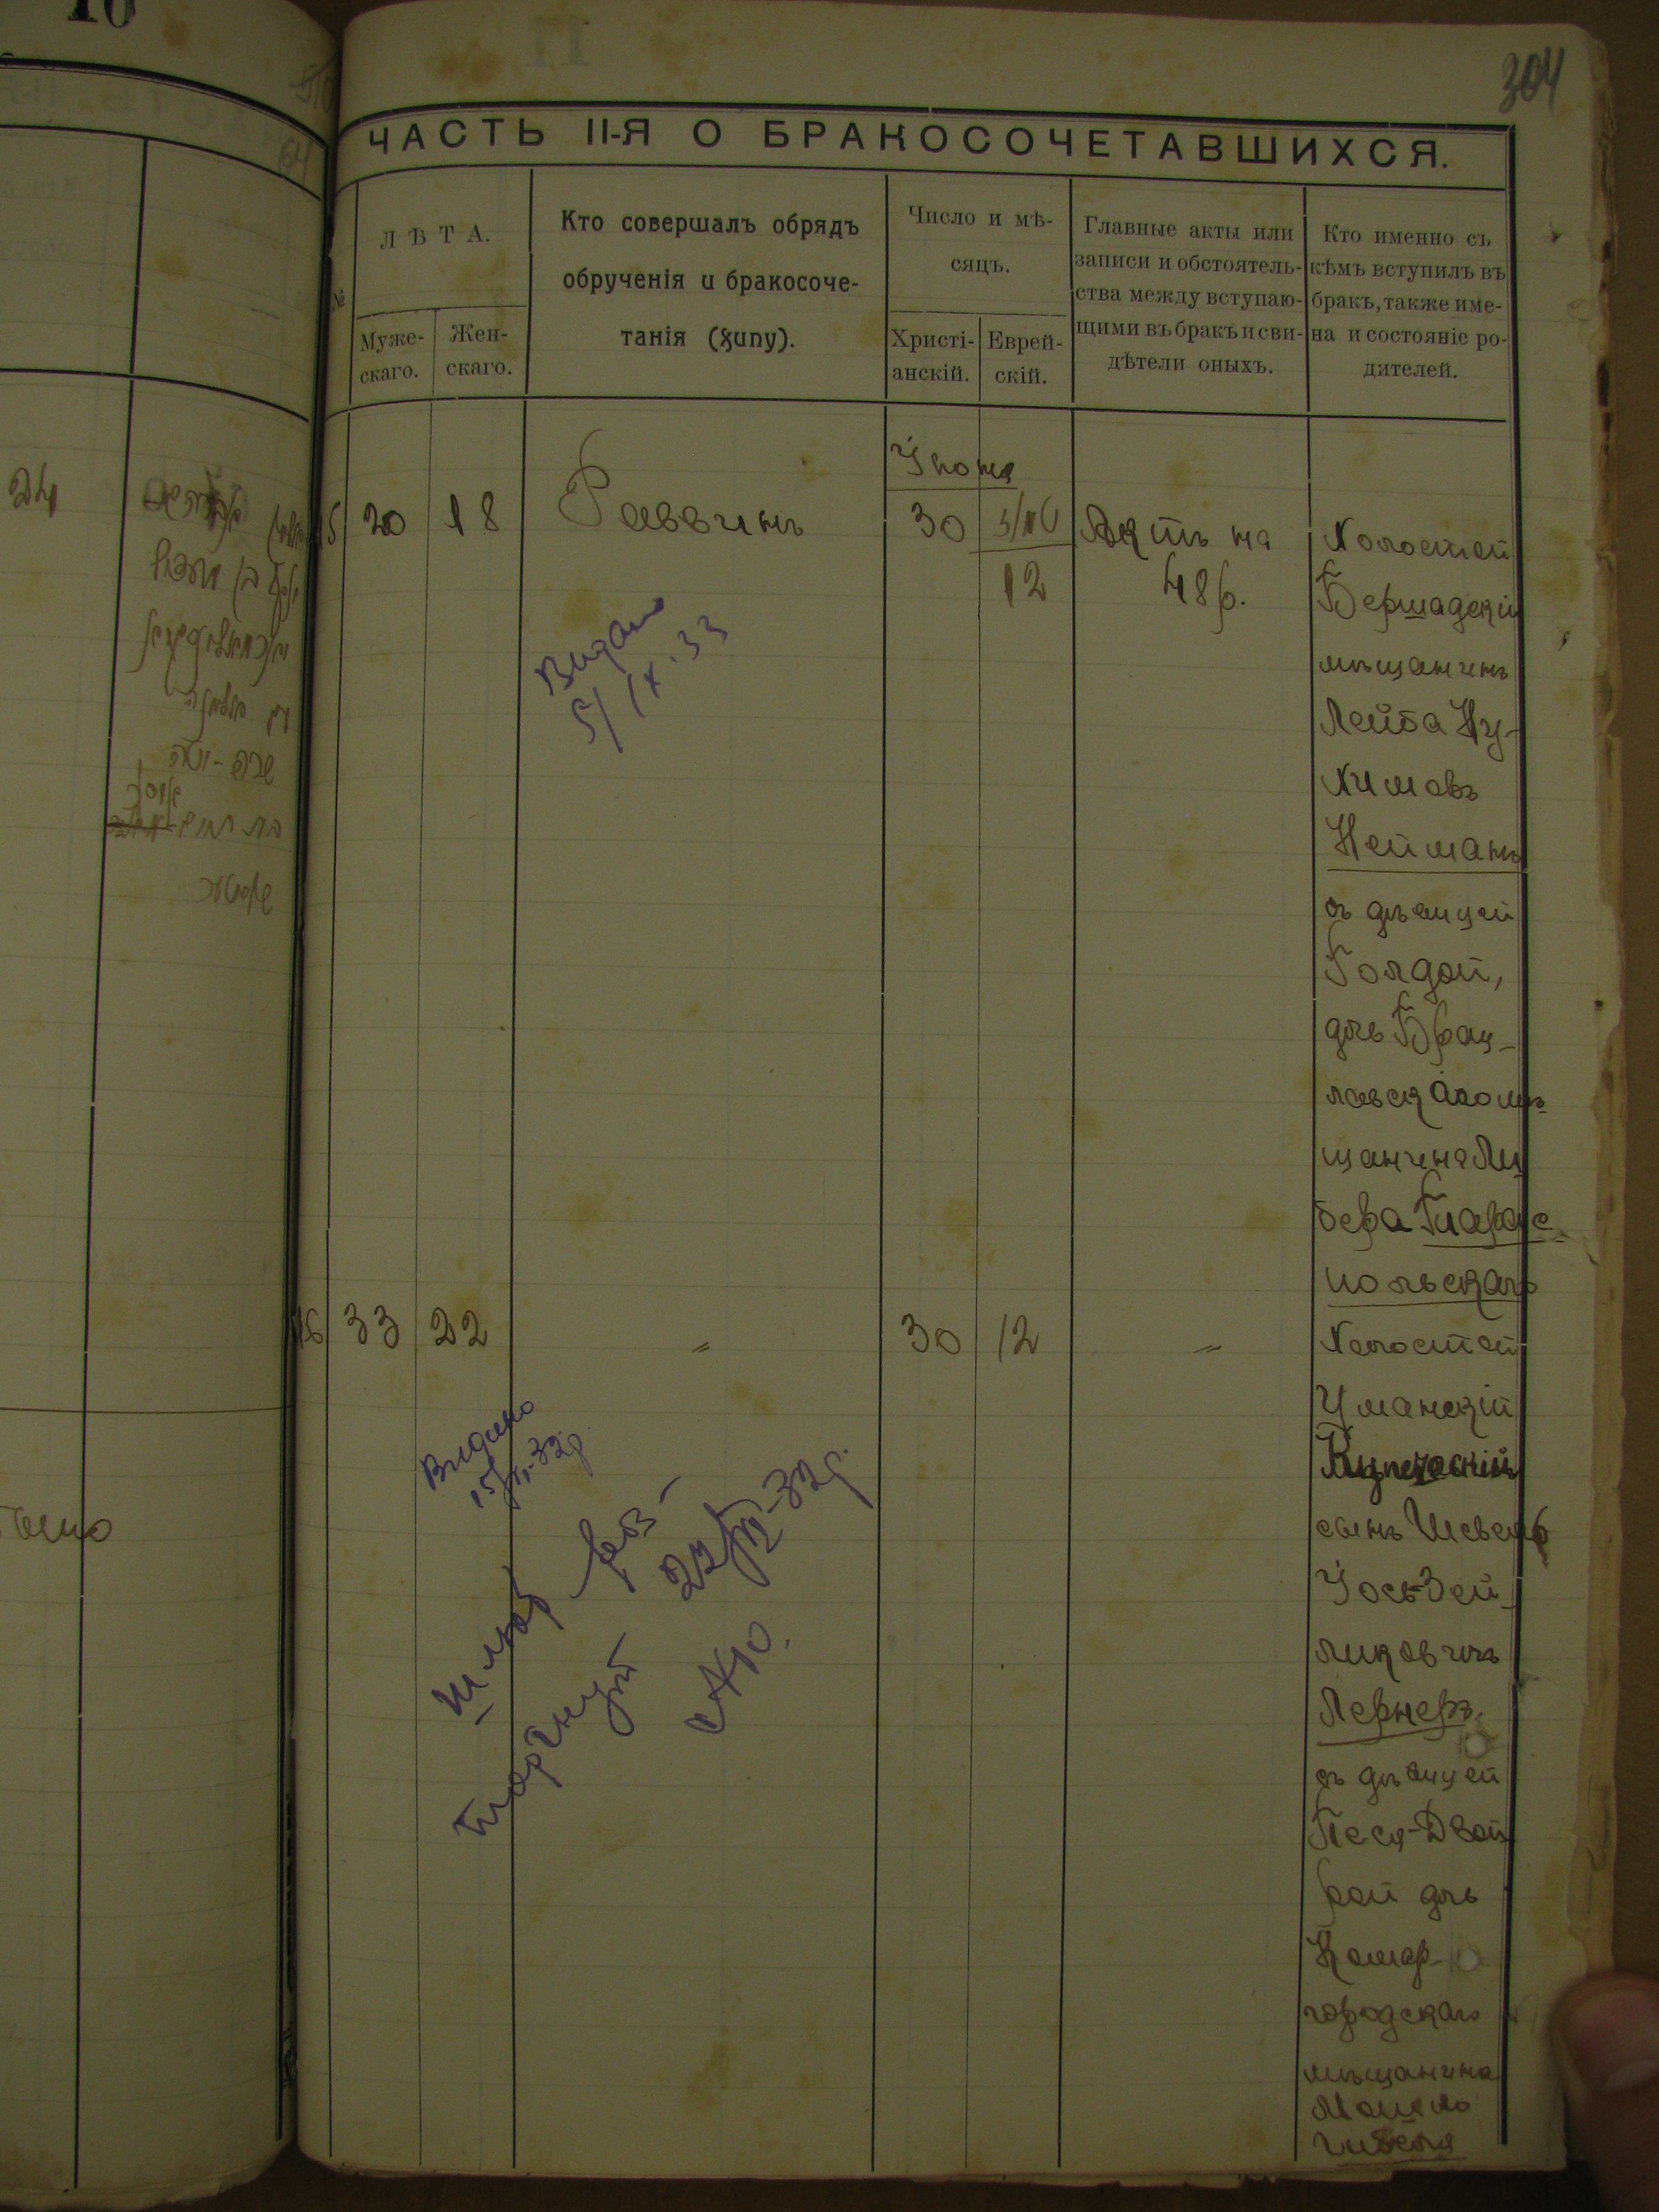 10
304
ЧАСТЬ II-Я О БРАКОСОЧЕТАВШИХСЯ.
№
ЛѢТА.
Муже-
скаго.
Жен-
скаго.
Кто совершалъ обрядъ
обрученія и бракосоче-
танія (хупу).
Число и мѣ-
сяцъ.
Христі-
анскій.
Еврей-
скій.
Главные акты или
записи и обстоятель-
ства между вступаю-
щими въ бракъ и сви-
дѣтели оныхъ.
Кто именно съ
кѣмъ вступилъ въ
бракъ, также име-
на и состояніе ро-
дителей.
24
15
20
18
Раввинъ
Іюня
30
12
Актъ на
48 р.
Холостой
Бершадскій
мѣщанинъ
Лейба Ну-
химовъ
Нейманъ
съ дѣвицей
Голдой,
дочь Брац-
лавскаго мѣ-
щанина Ли
бера Тирас
польскаго
Видано
5/IX.33
16
33
22
"
30
12
"
Холостой
Уманскій
Купеческій
сынъ Шевель
Іось-Зей-
ликовичъ
Лернеръ
съ дѣвицей
Песя-Двой
рой дочь
Комар-
городскаго
мѣщанина
Мошко
Видано
Шлюб роз-
торгнут